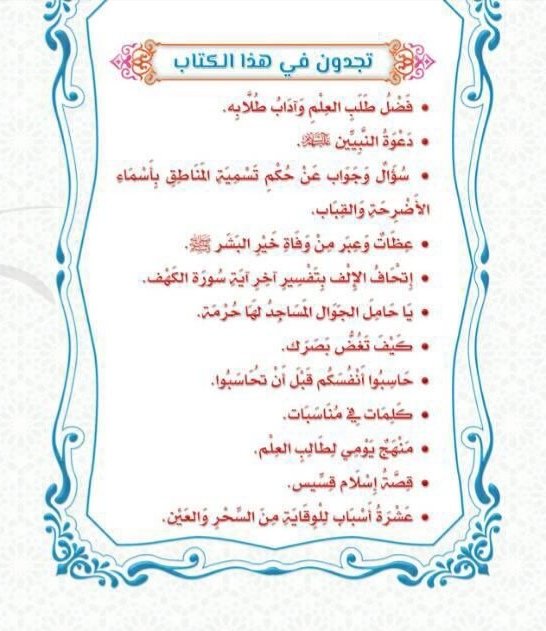 تجدون في هذا الكتاب
• فَضْلُ طَلَبِ العِلْمِ وَآدَابُ طُلَّابِه.
• دَعْوَةُ النَّبِيِّين عَلَيْهِمُ السَّلَام.
• سُؤَالٌ وَجَوَاب عَنْ حُكْمِ تَسْمِيَةِ المَنَاطِقِ بِأَسْمَاءِ
الأَضْرِحَةِ وَالقِبَاب.
• عِظَاتٌ وَعِبَر مِنْ وَفَاةِ خَيْرِ البَشَر ﷺ.
• إِتْحَافُ الإِلْف بِتَفْسِيرِ آخِرِ آيَةِ سُورَة الكَهْف.
• يَا حَامِلَ الجَوَّال المَسَاجِدُ لَهَا حُرْمَة.
• كَيْفَ تَغُضُّ بَصَرَك.
• حَاسِبُوا أَنْفُسَكُم قَبْلَ أَنْ تُحَاسَبُوا.
• كَلِمَات فِي مُنَاسَبَات.
• مَنْهَجٌ يَوْمِي لِطَالِبِ العِلْم.
• قِصَّةُ إِسْلَام قِسِّيس.
• عَشْرَةُ أَسْبَاب لِلْوِقَايَةِ مِنَ السِّحْرِ وَالعَيْن.